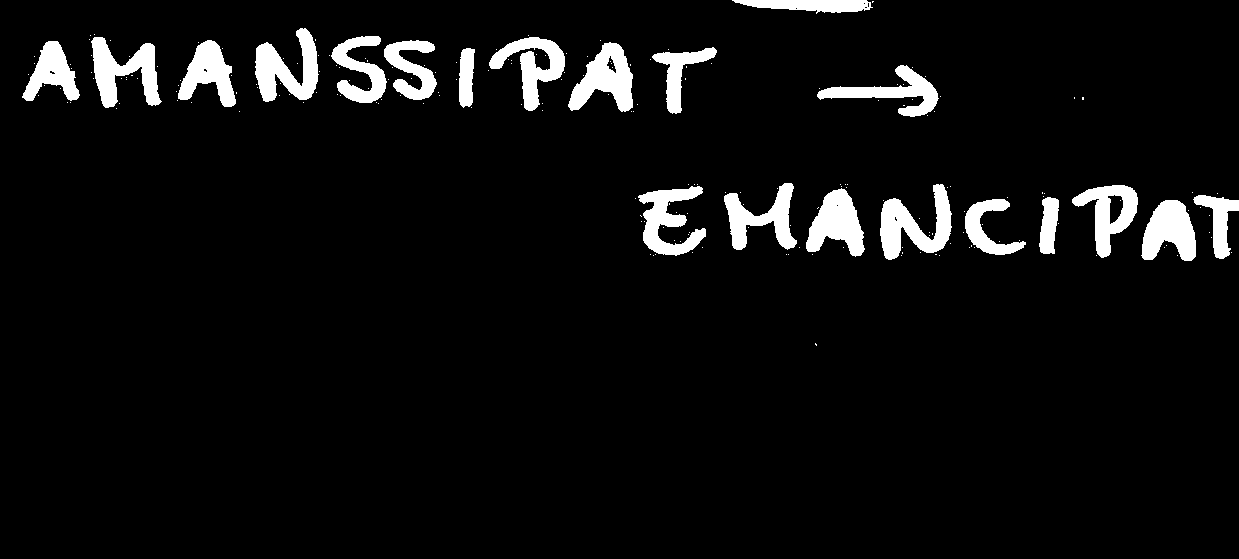 AMANSSIPAT →
EMANCIPAT